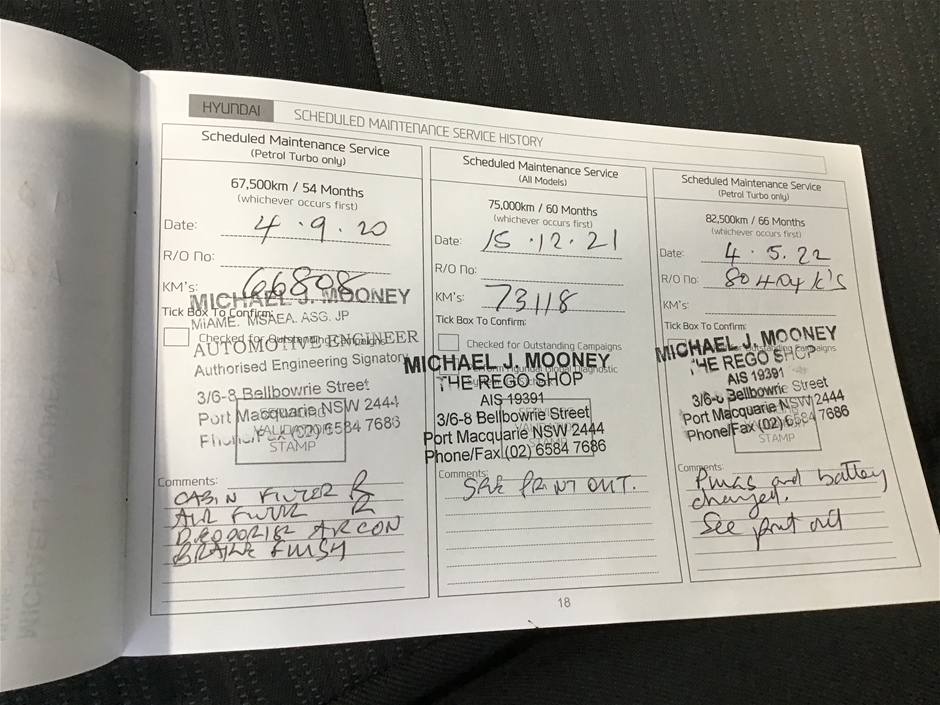 HYUNDAI SCHEDULED MAINTENANCE SERVICE HISTORY
Scheduled Maintenance Service
(Petrol Turbo only)
67,500km / 54 Months
(whichever occurs first)
Date: 4.9.20
R/O No:
KM's: 66808
MICHAEL J. MOONEY
Tick Box To Confirm:
MiAME. MSAEA. ASG. JP
Checked for Outstanding Campaigns
AUTOMOTIVE ENGINEER
Authorised Engineering Signatory
3/6-8 Bellbowrie Street
Port Macquarie NSW 2444
Phone/Fax (02) 6584 7686
VALIDATION
STAMP
Comments:
CABIN FILTER R
AIR FILTER R
DEODORISE AIRCON
BRAKE FLUSH
Scheduled Maintenance Service
(All Models)
75,000km / 60 Months
(whichever occurs first)
Date: 15.12.21
R/O No:
KM's: 73118
Tick Box To Confirm:
Checked for Outstanding Campaigns
MICHAEL J. MOONEY
THE REGO SHOP
AIS 19391
3/6-8 Bellbowrie Street
Port Macquarie NSW 2444
Phone/Fax (02) 6584 7686
STAMP
Comments:
SEE PRINT OUT.
Scheduled Maintenance Service
(Petrol Turbo only)
82,500km / 66 Months
(whichever occurs first)
Date: 4.5.22
R/O No: 80404 K's
KM's:
Tick Box To Confirm:
Outstanding Campaigns
MICHAEL J. MOONEY
THE REGO SHOP
AIS 19391
3/6-8 Bellbowrie Street
Port Macquarie NSW 2444
Phone/Fax (02) 6584 7686
STAMP
Comments:
and battery
changed.
See print out
18